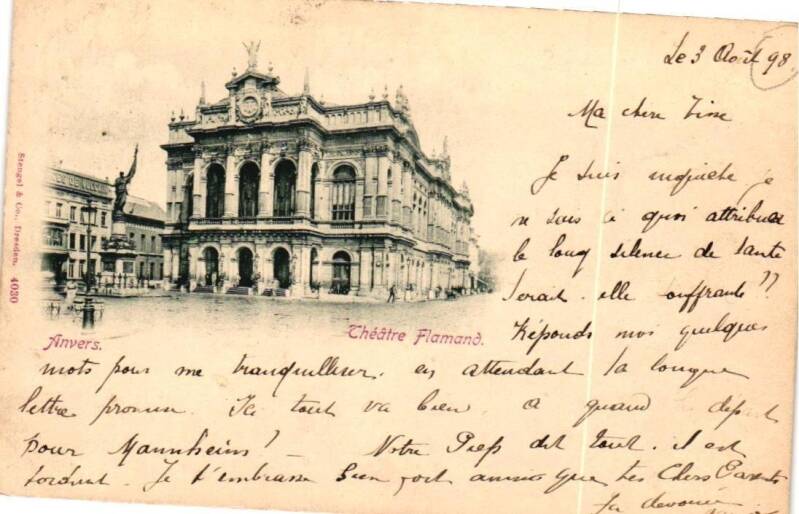 Le 3 Août 98
Ma chere
Je suis inquiete je
ne sais à quoi attribuer
le long silence de tante
serait-elle souffrante ??
Réponds moi quelques
mots pour me tranquilliser. en attendant ta longue
lettre promise. Ici tout va bien. A quand depart
pour Mannheim ? — Notre dit tout. il est
tordant. Je t'embrasse bien fort ainsi que tes Chers Parents
ta devouée
Anvers.
Théâtre Flamand.
Stengel & Co., Dresden. 4030